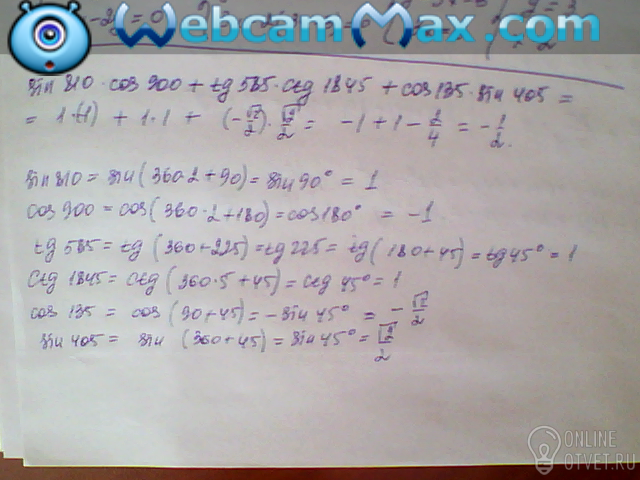 WebcamMax.com
-2y = 0
sin 810 · cos 900 + tg 585 · ctg 1845 + cos 135 · sin 405 =
= 1·(-1) + 1·1 + (-√2/2)·√2/2 = -1 + 1 - 2/4 = -1/2.
sin 810 = sin (360·2 + 90) = sin 90° = 1
cos 900 = cos (360·2 + 180) = cos 180° = -1
tg 585 = tg (360 + 225) = tg 225 = tg (180 + 45) = tg 45° = 1
ctg 1845 = ctg (360·5 + 45) = ctg 45° = 1
cos 135 = cos (90 + 45) = -sin 45° = -√2/2
sin 405 = sin (360 + 45) = sin 45° = √2/2
ONLINE
OTVET.RU